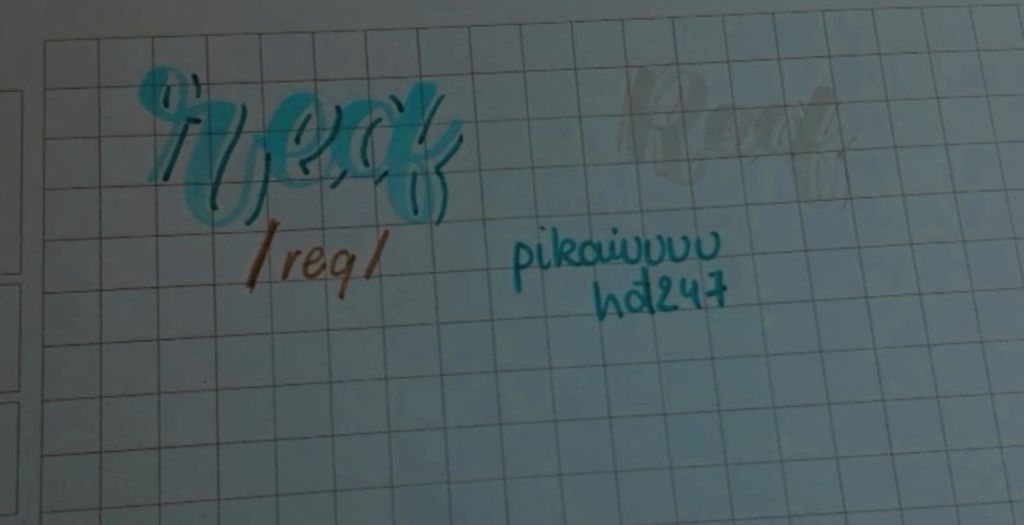 req
Req
/req/
pikaiuuuu
hd247